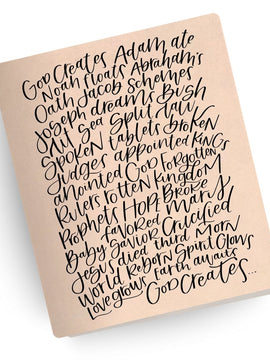 God Creates Adam ate
Noah floats Abraham's
Oath Jacob Schemes
Joseph dreams Bush
lit Sea Split law
Spoken tablets broken
Judges appointed Kings
anointed God forgotten
Rulers rotten Kingdom
Prophets Hope Broke
favored Mary
Baby Savior Crucified
Jesus died third Morn
World Reborn Spirit Glows
Love grows Earth awaits
God Creates...